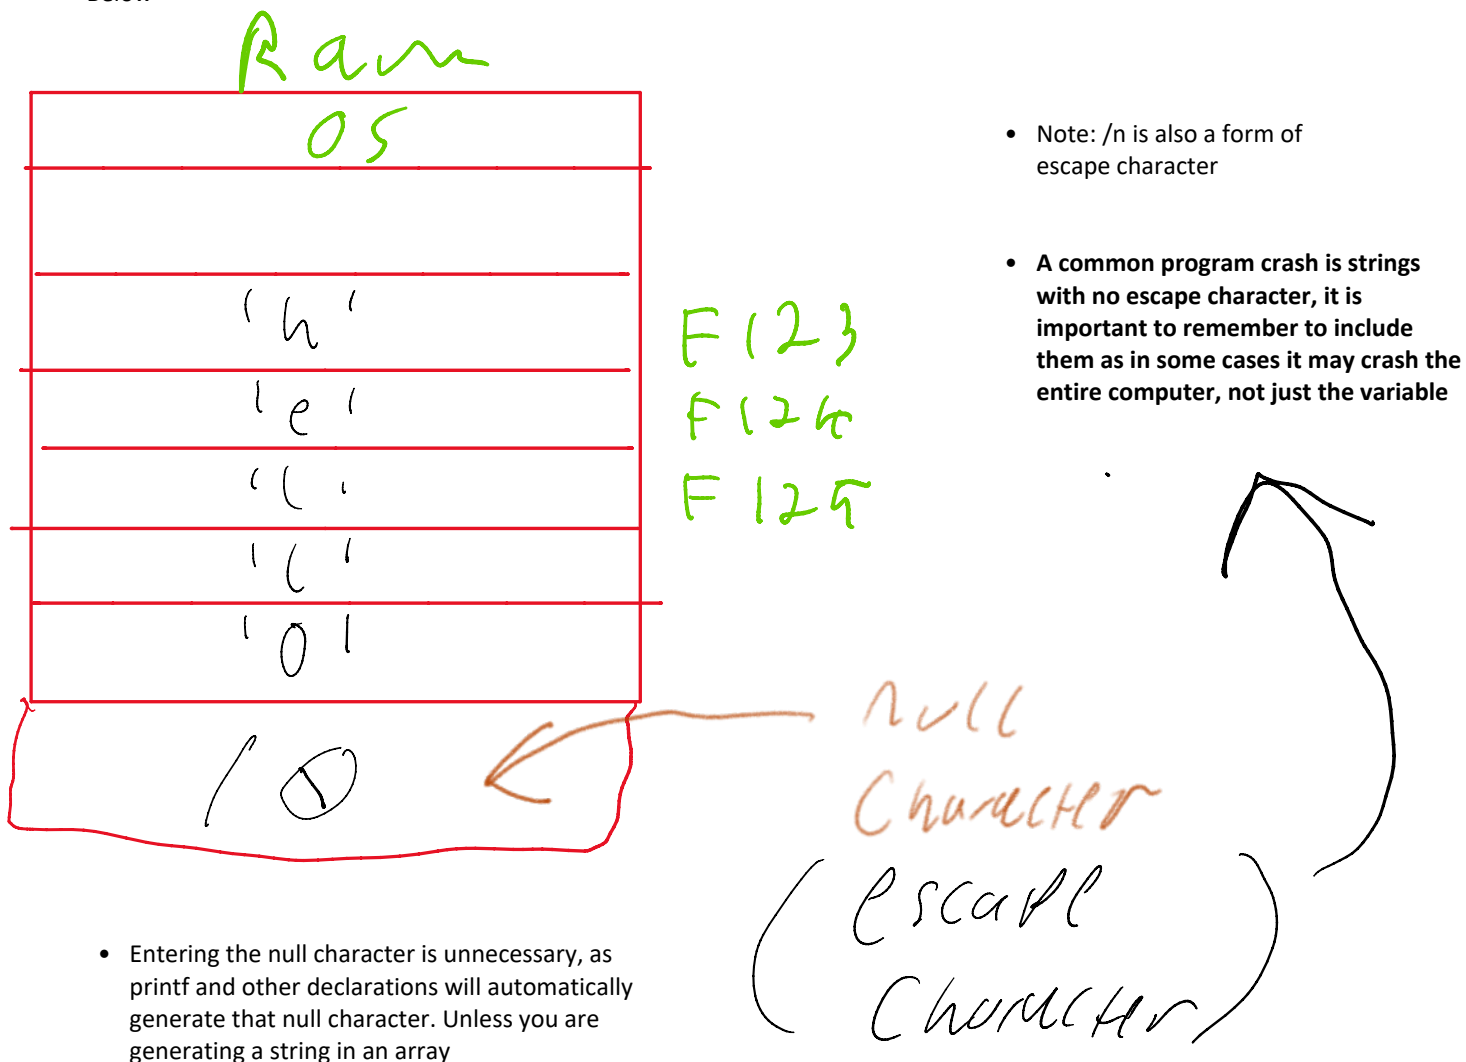 Below
Ram
OS
'h'
'e'
'l'
'l'
'o'
/0
F123
F124
F125
• Note: /n is also a form of
escape character
• A common program crash is strings
with no escape character, it is
important to remember to include
them as in some cases it may crash the
entire computer, not just the variable
null
character
(escape
character)
• Entering the null character is unnecessary, as
printf and other declarations will automatically
generate that null character. Unless you are
generating a string in an array